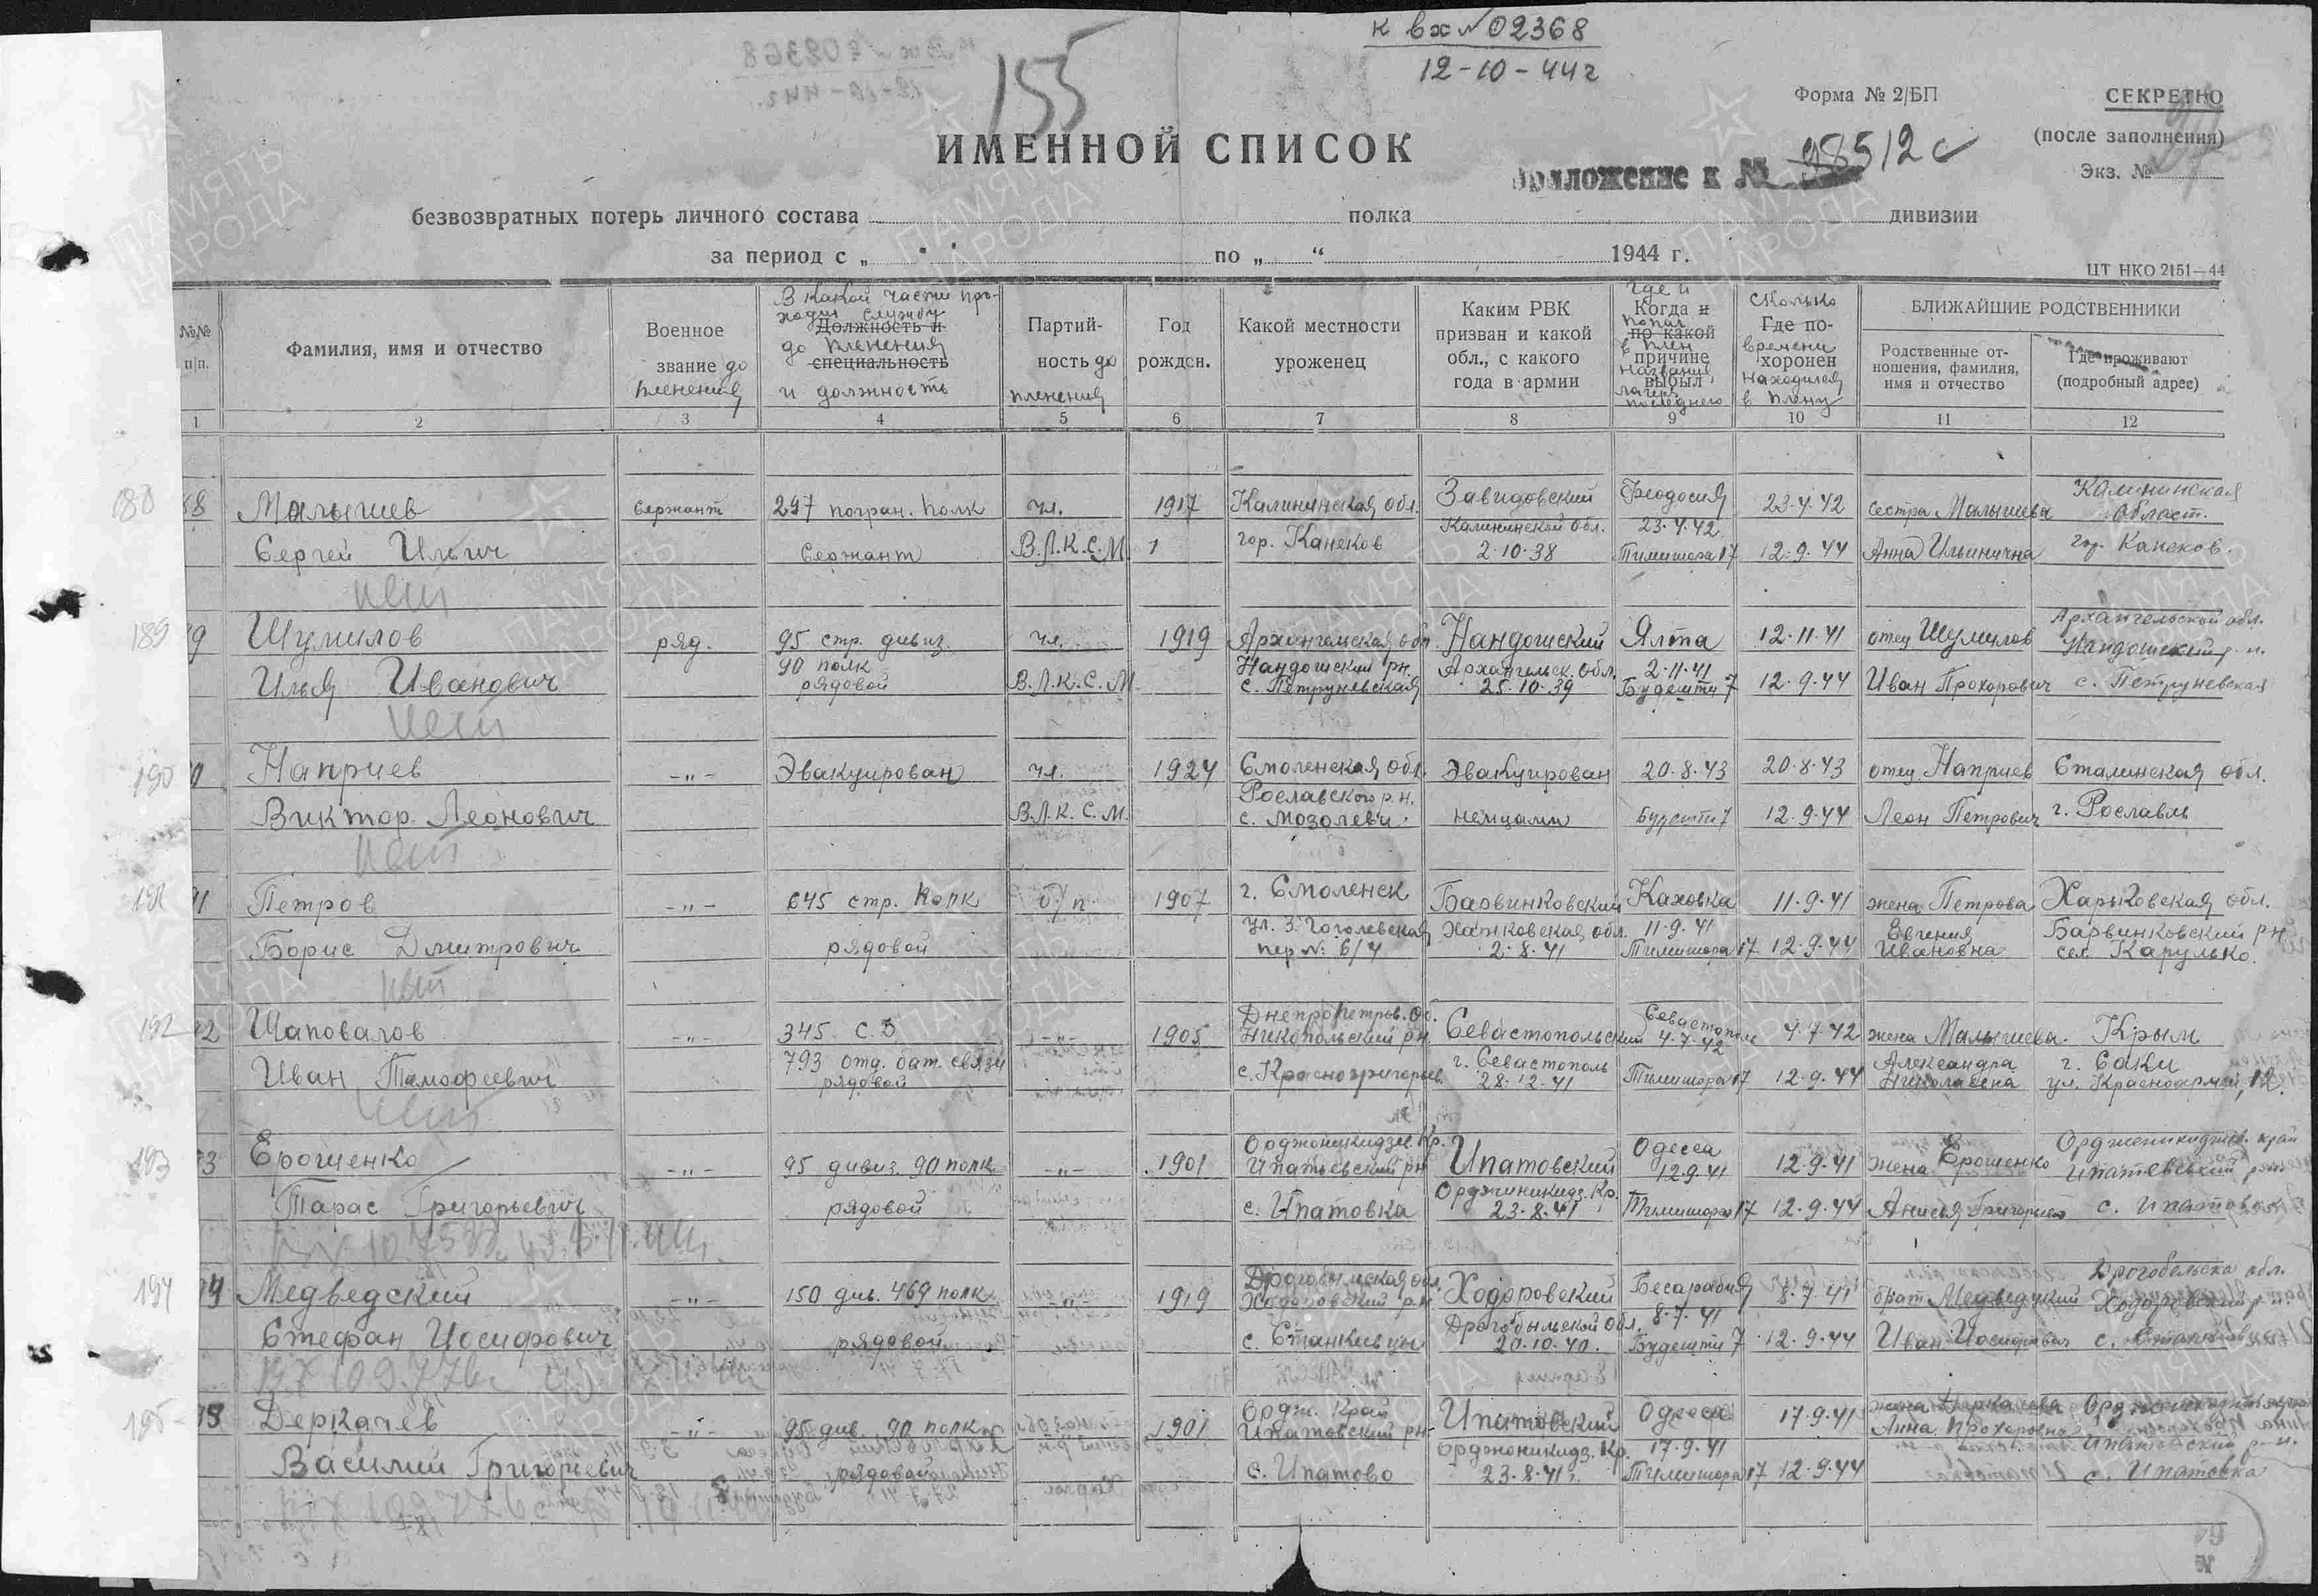 к вх № 02368
12-10-44г
155
Форма № 2/БП
СЕКРЕТНО
(после заполнения)
Экз. №
ИМЕННОЙ СПИСОК
Приложение к № 98512с
безвозвратных потерь личного состава полка дивизии
за период с „ “ по „ “ 1944 г.
ЦТ НКО 2151—44
№№ п/п.
Фамилия, имя и отчество
Военное звание до пленения
В какой части проходил службу до пленения и должность
Должность и специальность
Партийность до пленения
Год рожден.
Какой местности уроженец
Каким РВК призван и какой обл., с какого года в армии
Где и Когда и попал в плен название лагеря последнего
по какой причине выбыл
сколько времени находился в плену
Где похоронен
БЛИЖАЙШИЕ РОДСТВЕННИКИ
Родственные отношения, фамилия, имя и отчество
Где проживают (подробный адрес)
1 2 3 4 5 6 7 8 9 10 11 12
188 Малышев сержант 297 погран. полк чл. 1917 Калининская обл. Завидовский Феодосия 23.4.42 сестра Малышева Калининская област.
Калининской обл. 23.4.42
Сергей Ильич сержант В.Л.К.С.М гор. Канеков 2.10.38 Тимишора 17 12.9.44 Анна Ильинична гор. Канеков.
189 Шумилов ряд. 95 стр. дивиз. чл. 1919 Архангельская обл. Няндомский Ялта 12.11.41 отец Шумилов Архангельской обл.
90 полк Няндомский рн. Архангельск. обл. 2.11.41 Няндомский р-н.
Илья Иванович рядовой В.Л.К.С.М. с. Петруневская 25.10.39 Будешти 7 12.9.44 Иван Прохорович с. Петруневская
190 Наприев -"- Эвакуирован чл. 1924 Смоленская обл. Эвакуирован 20.8.43 20.8.43 отец Наприев Сталинская обл.
Рославского р.н.
Виктор Леонович В.Л.К.С.М. с. Мозолеви немцами Будешти 7 12.9.44 Леон Петрович г. Рославль
191 Петров -"- 645 стр. полк б/п 1907 г. Смоленск Барвинковский Каховка 11.9.41 жена Петрова Харьковская обл.
ул. 3 Гоголевская Харьковская обл. 11.9.41 Евгения Барвинковский рн
Борис Дмитрович рядовой пер № 6/4 2.8.41 Тимишора 17 12.9.44 Ивановна сел. Карулько.
192 Шаповалов -"- 345 с.д -"- 1905 Днепропетров. об. Никопольский рн. Севастопольский Севастополь 4.7.42 4.7.42 жена Малышева. Крым
793 отд. бат. связи г. Севастополь Александра г. Саки
Иван Тимофеевич рядовой с. Красногригорьев. 28.12.41 Тимишора 17 12.9.44 Николаевна ул. Красноармей, 12.
193 Ерошенко -"- 95 дивиз. 90 полк -"- 1901 Орджоникидзев. Кр. Ипатьевский рн Ипатовский Одесса 12.9.41 12.9.41 жена Ерошенко Орджоникидзев. край
Орджиникидз. Кр. Ипатевський
Тарас Григорьевич рядовой с. Ипатовка 23.8.41 Тимишора 17 12.9.44 с. Ипатовка
194 Медведский -"- 150 див. 469 полк -"- 1919 Ходоровский рн Ходоровский Бесарабия 8.7.41 8.7.41 брат Медведский Ходоровский р-н.
Дрогобыльской обл.
Стефан Иосифович рядовой с. Станкивцы 20.10.40. Будешти 7 12.9.44 Иван Иосифович
195 Деркачев -"- 95 див. 90 полк 1901 Ордж. Край Ипатовский рн Ипатовский Одесса 17.9.41 17.9.41 жена Деркачева
Анна Прохоровна Ипатовский р-н.
Василий Григорьевич рядовой с. Ипатово Орджоникидз. Кр. 23.8.41г. Тимишора 17 12.9.44 с. Ипатовка
ПАМЯТЬ НАРОДА